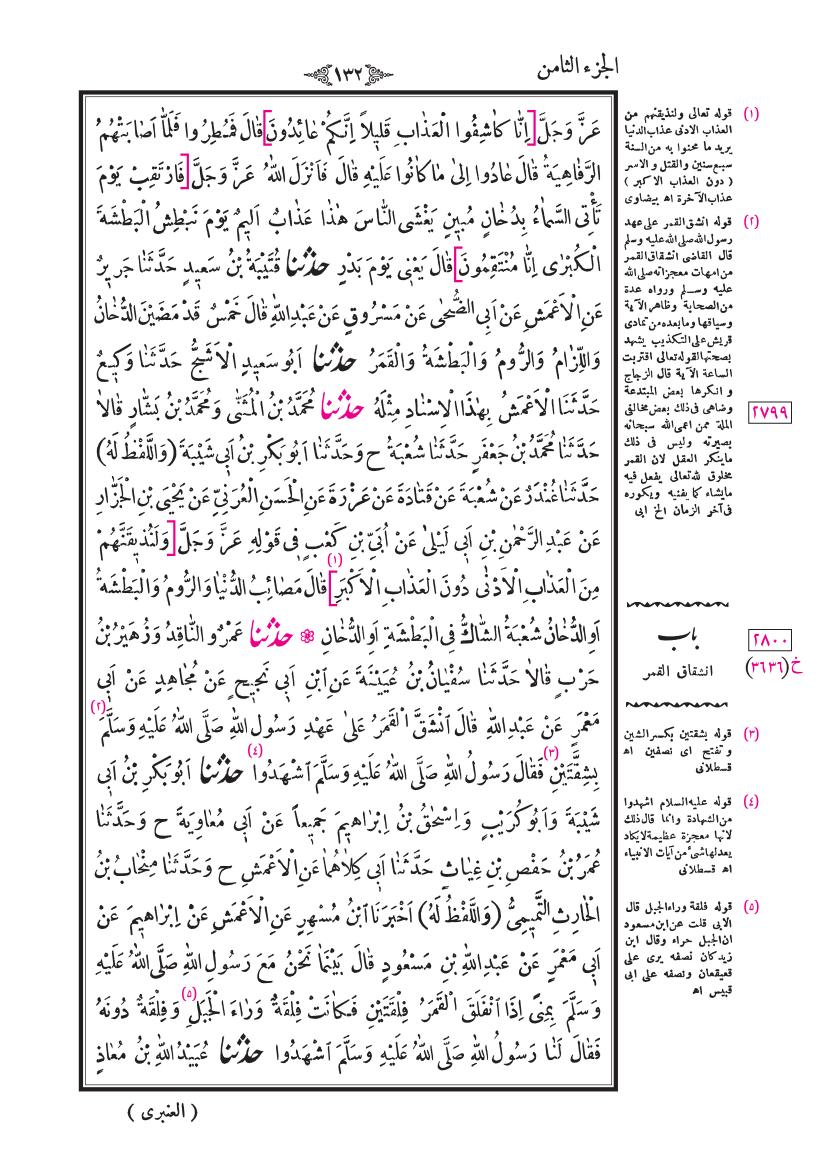 الجزء الثامن
١٣٢
عَزَّ وَجَلَّ [اِنَّا كَاشِفُوا الْعَذَابِ قَلِيلاً اِنَّكُمْ عَائِدُونَ] قَالَ فَمُطِرُوا فَلَمَّا اَصَابَتْهُمُ
الرَّفَاهِيَةُ قَالَ عَادُوا اِلٰى مَا كَانُوا عَلَيْهِ قَالَ فَاَنْزَلَ اللّٰهُ عَزَّ وَجَلَّ [فَارْتَقِبْ يَوْمَ
تَأْتِى السَّمَاءُ بِدُخَانٍ مُبِينٍ يَغْشَى النَّاسَ هٰذَا عَذَابٌ اَلِيمٌ يَوْمَ نَبْطِشُ الْبَطْشَةَ
الْكُبْرٰى اِنَّا مُنْتَقِمُونَ] قَالَ يَعْنِى يَوْمَ بَدْرٍ حَدَّثَنَا قُتَيْبَةُ بْنُ سَعِيدٍ حَدَّثَنَا جَرِيرٌ
عَنِ الْاَعْمَشِ عَنْ اَبِى الضُّحٰى عَنْ مَسْرُوقٍ عَنْ عَبْدِ اللّٰهِ قَالَ خَمْسٌ قَدْ مَضَيْنَ الدُّخَانُ
وَاللِّزَامُ وَالرُّومُ وَالْبَطْشَةُ وَالْقَمَرُ حَدَّثَنَا اَبُو سَعِيدٍ الْاَشَجُّ حَدَّثَنَا وَكِيعٌ
حَدَّثَنَا الْاَعْمَشُ بِهٰذَا الْاِسْنَادِ مِثْلَهُ حَدَّثَنَا مُحَمَّدُ بْنُ الْمُثَنّٰى وَمُحَمَّدُ بْنُ بَشَّارٍ قَالَا
حَدَّثَنَا مُحَمَّدُ بْنُ جَعْفَرٍ حَدَّثَنَا شُعْبَةُ ح وَحَدَّثَنَا اَبُو بَكْرِ بْنُ اَبِى شَيْبَةَ (وَاللَّفْظُ لَهُ)
حَدَّثَنَا غُنْدَرٌ عَنْ شُعْبَةَ عَنْ قَتَادَةَ عَنْ عَزْرَةَ عَنِ الْحَسَنِ الْعُرَنِىِّ عَنْ يَحْيَى بْنِ الْجَزَّارِ
عَنْ عَبْدِ الرَّحْمٰنِ بْنِ اَبِى لَيْلٰى عَنْ اُبَىِّ بْنِ كَعْبٍ فِى قَوْلِهِ عَزَّ وَجَلَّ [وَلَنُذِيقَنَّهُمْ
مِنَ الْعَذَابِ الْاَدْنٰى دُونَ الْعَذَابِ الْاَكْبَرِ] (١) قَالَ مَصَائِبُ الدُّنْيَا وَالرُّومُ وَالْبَطْشَةُ
اَوِ الدُّخَانُ شُعْبَةُ الشَّاكُّ فِى الْبَطْشَةِ اَوِ الدُّخَانِ ۞ حَدَّثَنَا عَمْرٌو النَّاقِدُ وَزُهَيْرُ بْنُ
حَرْبٍ قَالَا حَدَّثَنَا سُفْيَانُ بْنُ عُيَيْنَةَ عَنِ ابْنِ اَبِى نَجِيحٍ عَنْ مُجَاهِدٍ عَنْ اَبِى
مَعْمَرٍ عَنْ عَبْدِ اللّٰهِ قَالَ انْشَقَّ الْقَمَرُ عَلٰى عَهْدِ رَسُولِ اللّٰهِ صَلَّى اللّٰهُ عَلَيْهِ وَسَلَّمَ (٢)
بِشِقَّتَيْنِ (٣) فَقَالَ رَسُولُ اللّٰهِ صَلَّى اللّٰهُ عَلَيْهِ وَسَلَّمَ اشْهَدُوا (٤) حَدَّثَنَا اَبُو بَكْرِ بْنُ اَبِى
شَيْبَةَ وَاَبُو كُرَيْبٍ وَاِسْحٰقُ بْنُ اِبْرَاهِيمَ جَمِيعاً عَنْ اَبِى مُعَاوِيَةَ ح وَحَدَّثَنَا
عُمَرُ بْنُ حَفْصِ بْنِ غِيَاثٍ حَدَّثَنَا اَبِى كِلَاهُمَا عَنِ الْاَعْمَشِ ح وَحَدَّثَنَا مِنْجَابُ بْنُ
الْحَارِثِ التَّمِيمِىُّ (وَاللَّفْظُ لَهُ) اَخْبَرَنَا ابْنُ مُسْهِرٍ عَنِ الْاَعْمَشِ عَنْ اِبْرَاهِيمَ عَنْ
اَبِى مَعْمَرٍ عَنْ عَبْدِ اللّٰهِ بْنِ مَسْعُودٍ قَالَ بَيْنَمَا نَحْنُ مَعَ رَسُولِ اللّٰهِ صَلَّى اللّٰهُ عَلَيْهِ
وَسَلَّمَ بِمِنًى اِذَا انْفَلَقَ الْقَمَرُ فِلْقَتَيْنِ فَكَانَتْ فِلْقَةٌ وَرَاءَ الْجَبَلِ (٥) وَفِلْقَةٌ دُونَهُ
فَقَالَ لَنَا رَسُولُ اللّٰهِ صَلَّى اللّٰهُ عَلَيْهِ وَسَلَّمَ اشْهَدُوا حَدَّثَنَا عُبَيْدُ اللّٰهِ بْنُ مُعَاذٍ
( العنبرى )
(١) قوله تعالى ولنذيقنهم من
العذاب الادنى عذاب الدنيا
يريد ما محنوا به من السنة
سبع سنين والقتل والاسر
( دون العذاب الاكبر )
عذاب الآخرة اه بيضاوى
(٢) قوله انشق القمر على عهد
رسول الله صلى الله عليه وسلم
قال القاضى انشقاق القمر
من امهات معجزاته صلى الله
عليه وسلم ورواه عدة
من الصحابة وظاهر الآية
وسياقها وما بعده من تمادى
قريش على التكذيب يشهد
بصحتها لقوله تعالى اقتربت
الساعة الآية قال الزجاج
و انكرها بعض المبتدعة
وضاهى فى ذلك بعض مخالفى
الملة ممن اعمى الله سبحانه
بصيرته وليس فى ذلك
ما ينكر العقل لان القمر
مخلوق لله تعالى يفعل فيه
ما يشاء كما يفنيه ويكوره
فى آخر الزمان الخ ابى
٢٧٩٩
باب
انشقاق القمر
٢٨٠٠
خ(٣٦٣٦)
(٣) قوله بشقتين بكسر الشين
وتفتح اى نصفين اه
قسطلانى
(٤) قوله عليه السلام اشهدوا
من الشهادة وانما قال ذلك
لانها معجزة عظيمة لا يكاد
يعدلها شئ من آيات الانبياء
اه قسطلانى
(٥) قوله فلقة وراء الجبل قال
الابى قلت عن ابن مسعود
ان الجبل حراء وقال ابن
زيد كان نصفه يرى على
قعيقعان ونصفه على ابى
قبيس اه